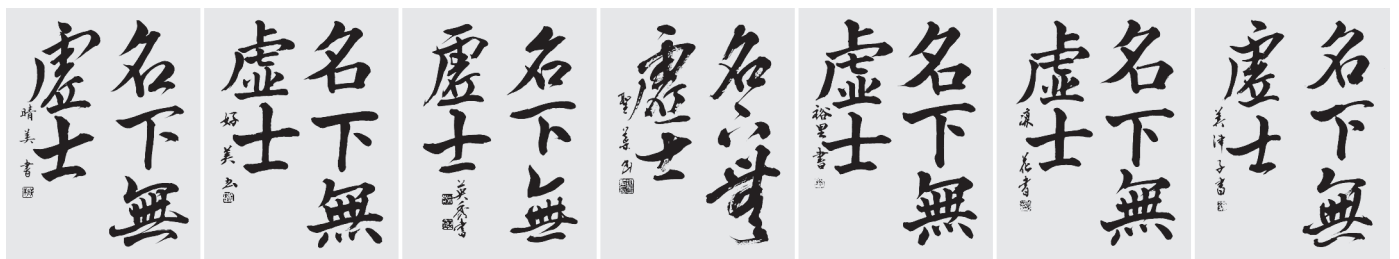 名下無
虚士
晴美書
名下無
虚士
好美書
名下無
虚士
英秀書
名下無
虚士
聖美書
名下無
虚士
裕里書
名下無
虚士
涼花書
名下無
虚士
美津子書